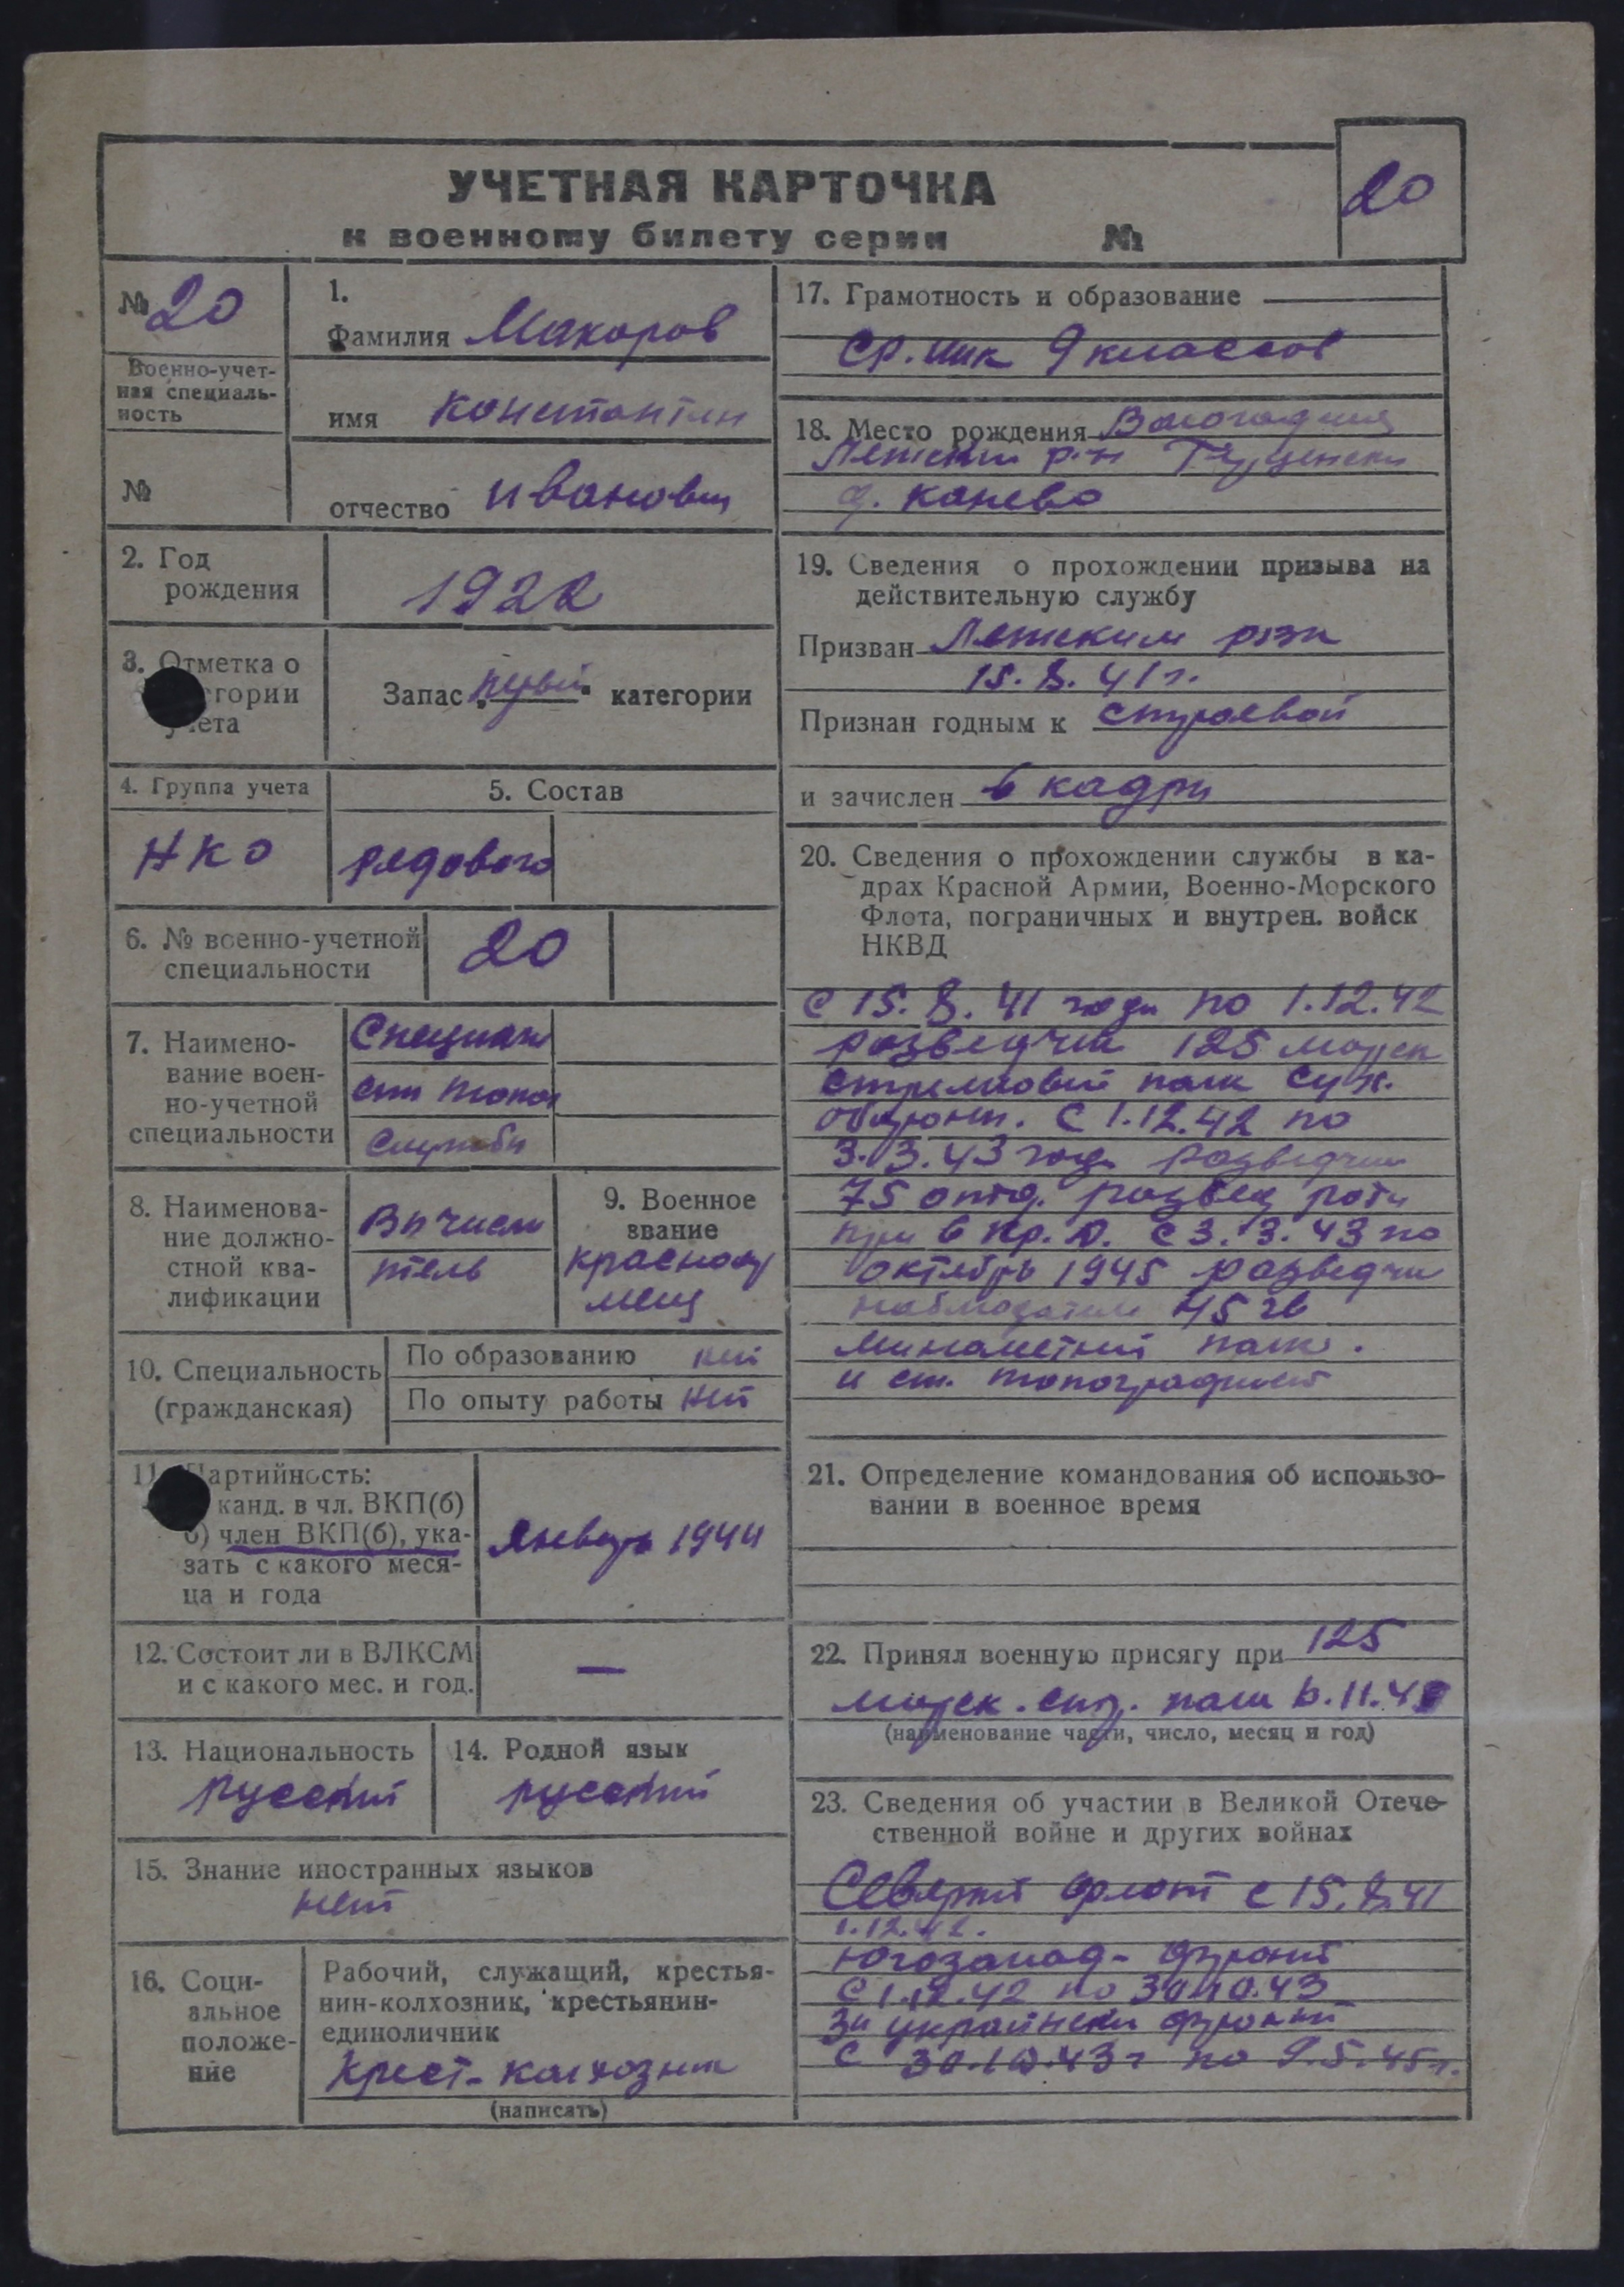 УЧЕТНАЯ КАРТОЧКА
к военному билету серии №
20
№ 20
Военно-учет-
ная специаль-
ность
№
1.
Фамилия Макаров
имя Константин
отчество Иванович
2. Год
рождения
1922
3. Отметка о
егории
ета
Запас категории
4. Группа учета
НКО
5. Состав
рядового
6. № военно-учетной
специальности
20
7. Наимено-
вание воен-
но-учетной
специальности
Специал
службы
8. Наименова-
ние должно-
стной ква-
лификации
Вычисли
тель
9. Военное
звание
красноар
меец
10. Специальность
(гражданская)
По образованию нет
По опыту работы нет
11. Партийность:
канд. в чл. ВКП(б)
б) член ВКП(б), ука-
зать с какого меся-
ца и года
Январь 1944
12. Состоит ли в ВЛКСМ
и с какого мес. и год.
—
13. Национальность
русский
14. Родной язык
русский
15. Знание иностранных языков
нет
16. Соци-
альное
положе-
ние
Рабочий, служащий, крестья-
нин-колхозник, крестьянин-
единоличник
Крест-колхозник
(написать)
17. Грамотность и образование
Ср. 9 классов
18. Место рождения
р-н
д. Канево
19. Сведения о прохождении призыва на
действительную службу
Призван
15.8.41 г.
Признан годным к строевой
и зачислен в кадры
20. Сведения о прохождении службы в ка-
драх Красной Армии, Военно-Морского
Флота, пограничных и внутрен. войск
НКВД
С 15.8.41 года по 1.12.42
разведчик 125 морск
стрелковый полк
С 1.12.42 по
3.3.43 года разведчик
75 отд. развед роты
при С 3.3.43 по
октябрь 1945 разведчик
наблюдатель 45 гв
минометный полк.
и ст. топографист
21. Определение командования об использо-
вании в военное время
22. Принял военную присягу при 125
морск. стр. полк 6.11.4
(наименование части, число, месяц и год)
23. Сведения об участии в Великой Отече-
ственной войне и других войнах
Северный флот с 15.8.41
1.12.42.
Югозапад- фронт
С 1.12.42 по 30.10.43
3й украински фронт
С 30.10.43 г по 9.5.45 г.